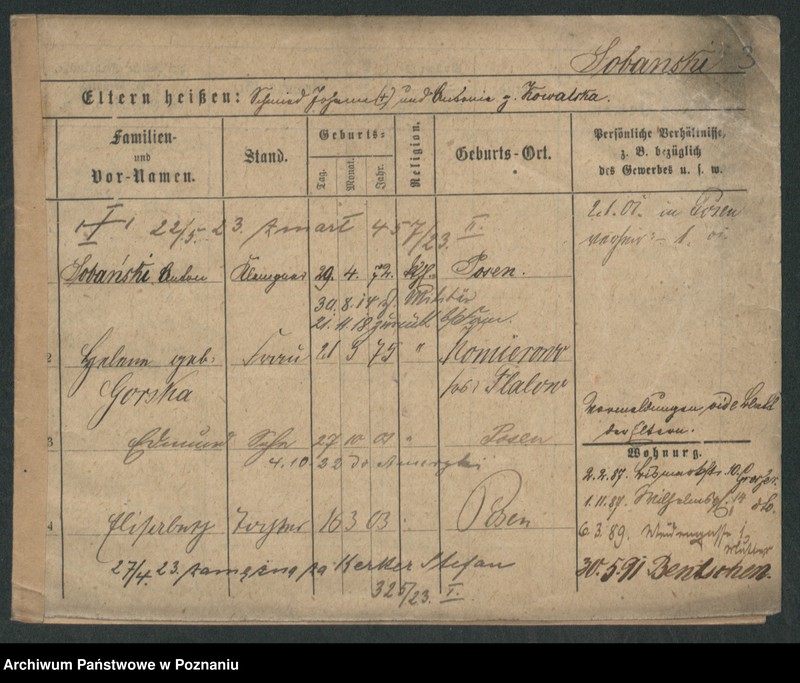 Sobański 3
Eltern heißen: Schmied Johann (†) und Antonie g. Kowalska.
Familien- und Vor-Namen.
Stand.
Geburts-
Tag.
Monat.
Jahr.
Religion.
Geburts-Ort.
Persönliche Verhältnisse, z. B. bezüglich des Gewerbes u. s. w.
22/5. 23. zmarł 457/23. II.
2.1.01. in Posen
Sobański Anton Klempner 29. 4. 72. kth. Posen.
30. 8. 14 z. Militär
21. 11. 18 zurück
2 Helene geb. Frau 21 5 75 "
Gorska
Flatow
Vermeldungen, vide
der Eltern.
Wohnung.
3 Edmund Sohn 27 10 01 " Posen
4. 10. 22 do Ameryki
2.2.87. Bismarckstr. 10.
1.11.87. Wilhelmspl. 14
4 Elisabeth Tochter 16 3 03 Posen
6.3.89.
27/4. 23. zamężna za Kerker Stefan
30.5.91 Bentschen.
325/23. I.
Archiwum Państwowe w Poznaniu